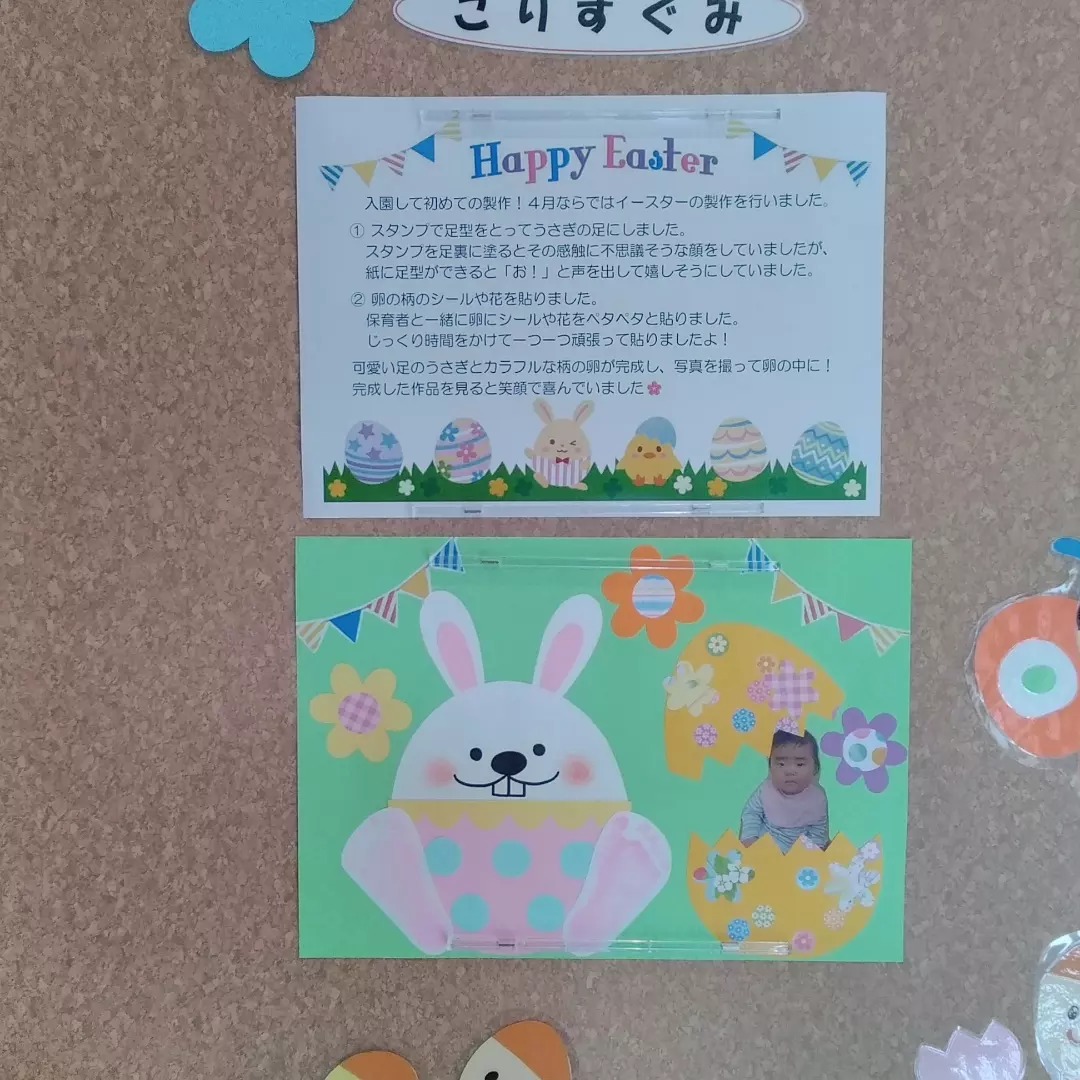 こりすぐみ
Happy Easter
入園して初めての製作！４月ならではイースターの製作を行いました。
① スタンプで足型をとってうさぎの足にしました。
スタンプを足裏に塗るとその感触に不思議そうな顔をしていましたが、
紙に足型ができると「お！」と声を出して嬉しそうにしていました。
② 卵の柄のシールや花を貼りました。
保育者と一緒に卵にシールや花をペタペタと貼りました。
じっくり時間をかけて一つ一つ頑張って貼りましたよ！
可愛い足のうさぎとカラフルな柄の卵が完成し、写真を撮って卵の中に！
完成した作品を見ると笑顔で喜んでいました